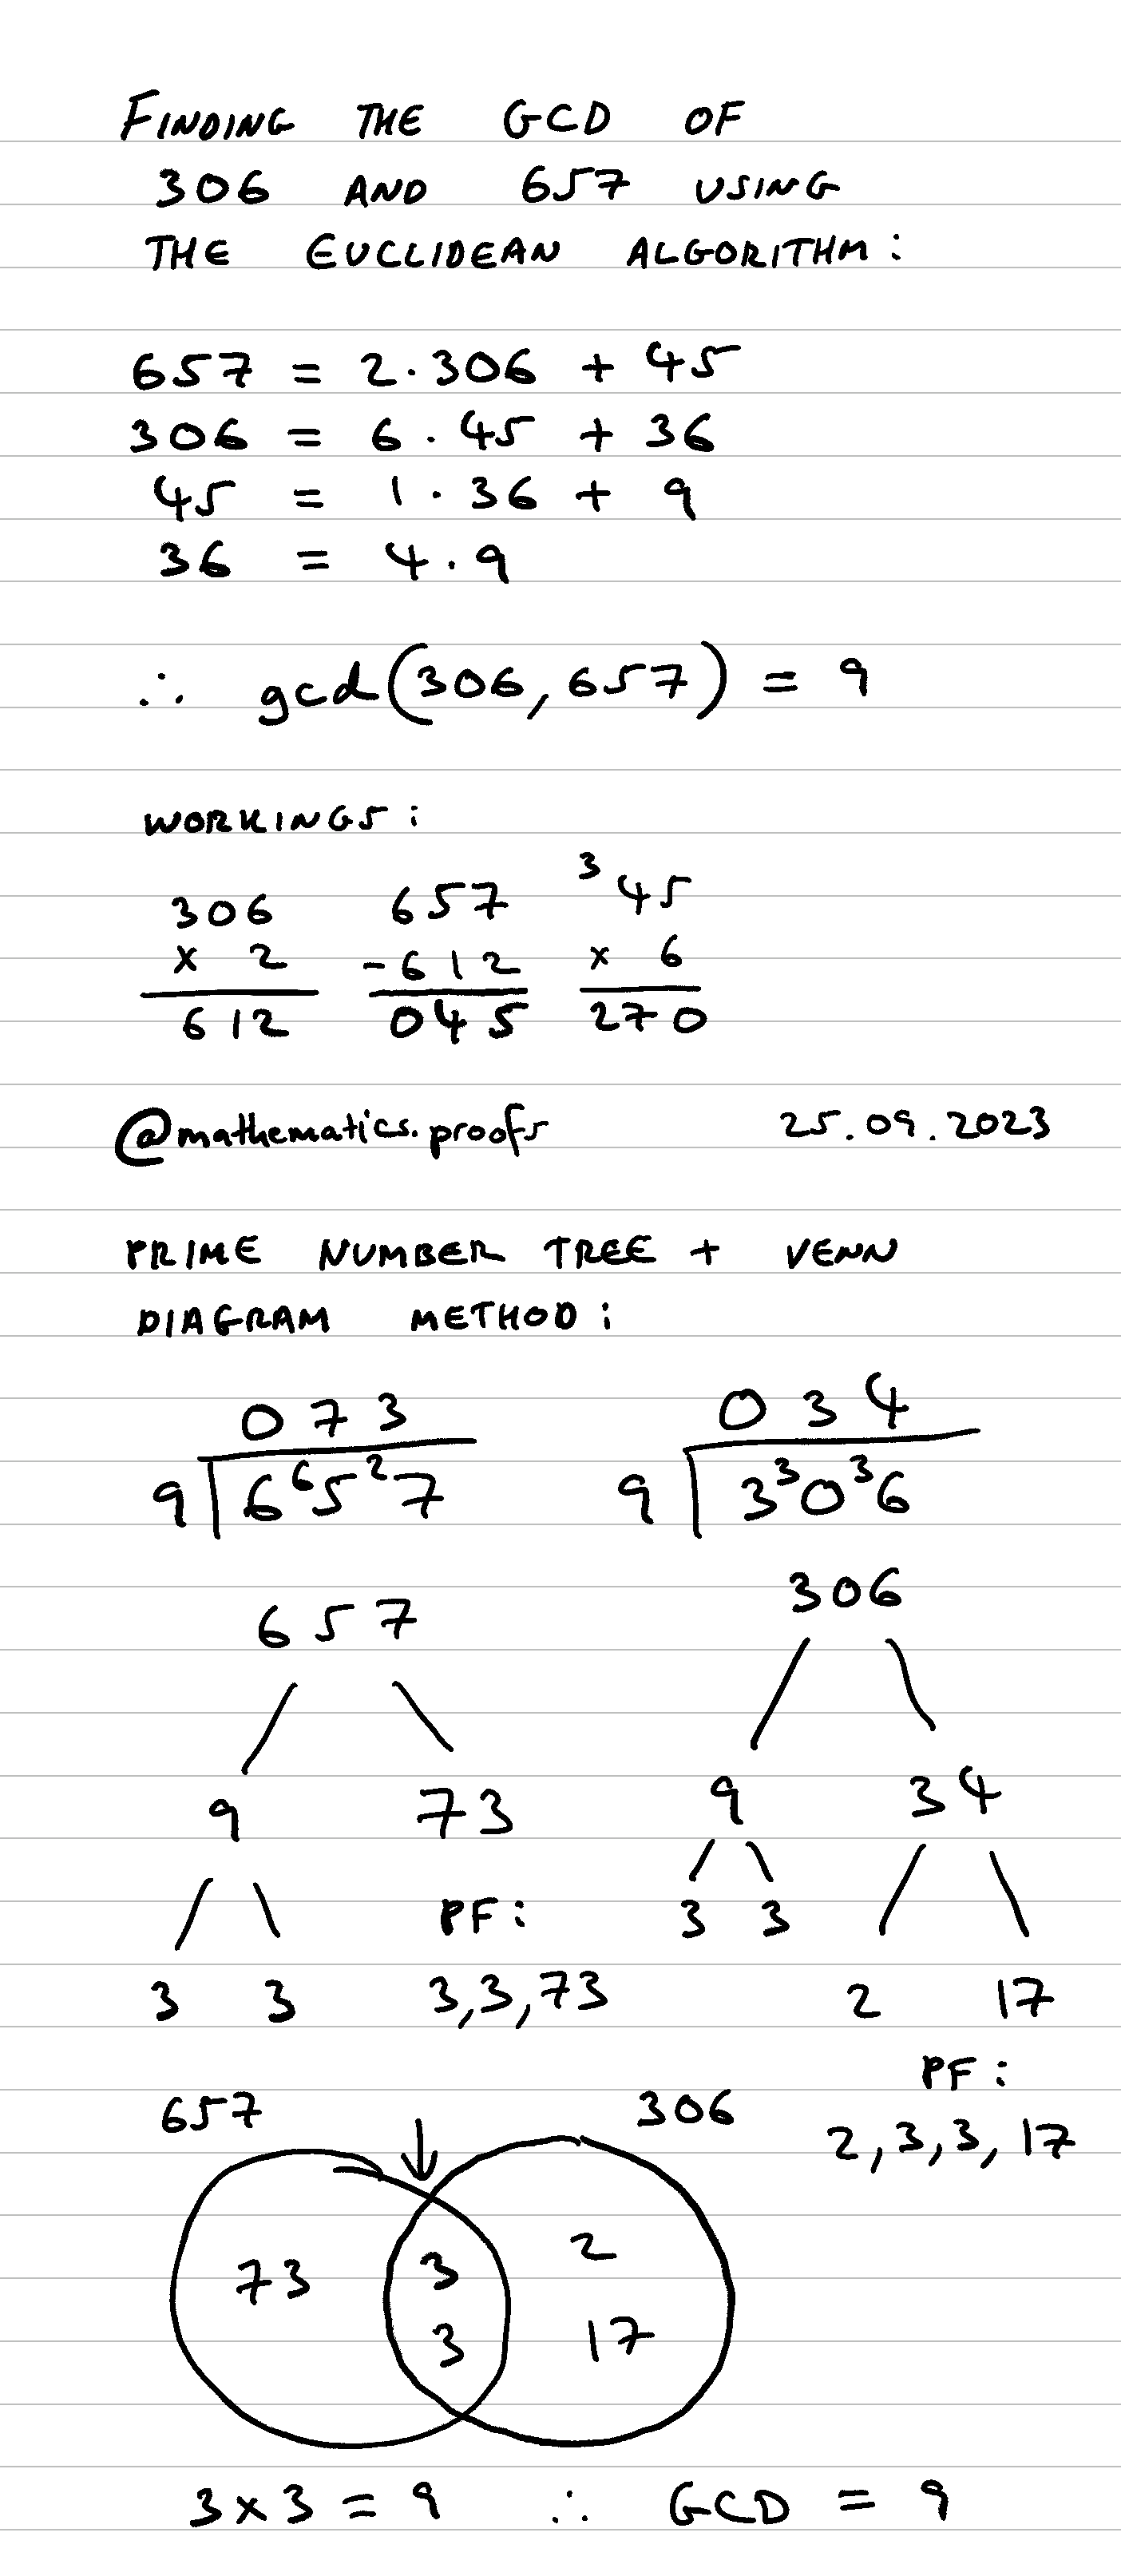 FINDING THE GCD OF
306 AND 657 USING
THE EUCLIDEAN ALGORITHM:
657 = 2.306 + 45
306 = 6.45 + 36
45 = 1.36 + 9
36 = 4.9
∴ gcd(306,657) = 9
WORKINGS:
306 657 ³45
x 2 -612 x 6
612 045 270
@mathematics.proofs 25.09.2023
PRIME NUMBER TREE + VENN
DIAGRAM METHOD:
073 034
9 6⁶5²7 9 3³0³6
306
657
9 73 9 34
PF: 3 3
3 3 3,3,73 2 17
PF:
657 306 2,3,3,17
73 3 2
3 17
3x3 = 9 ∴ GCD = 9